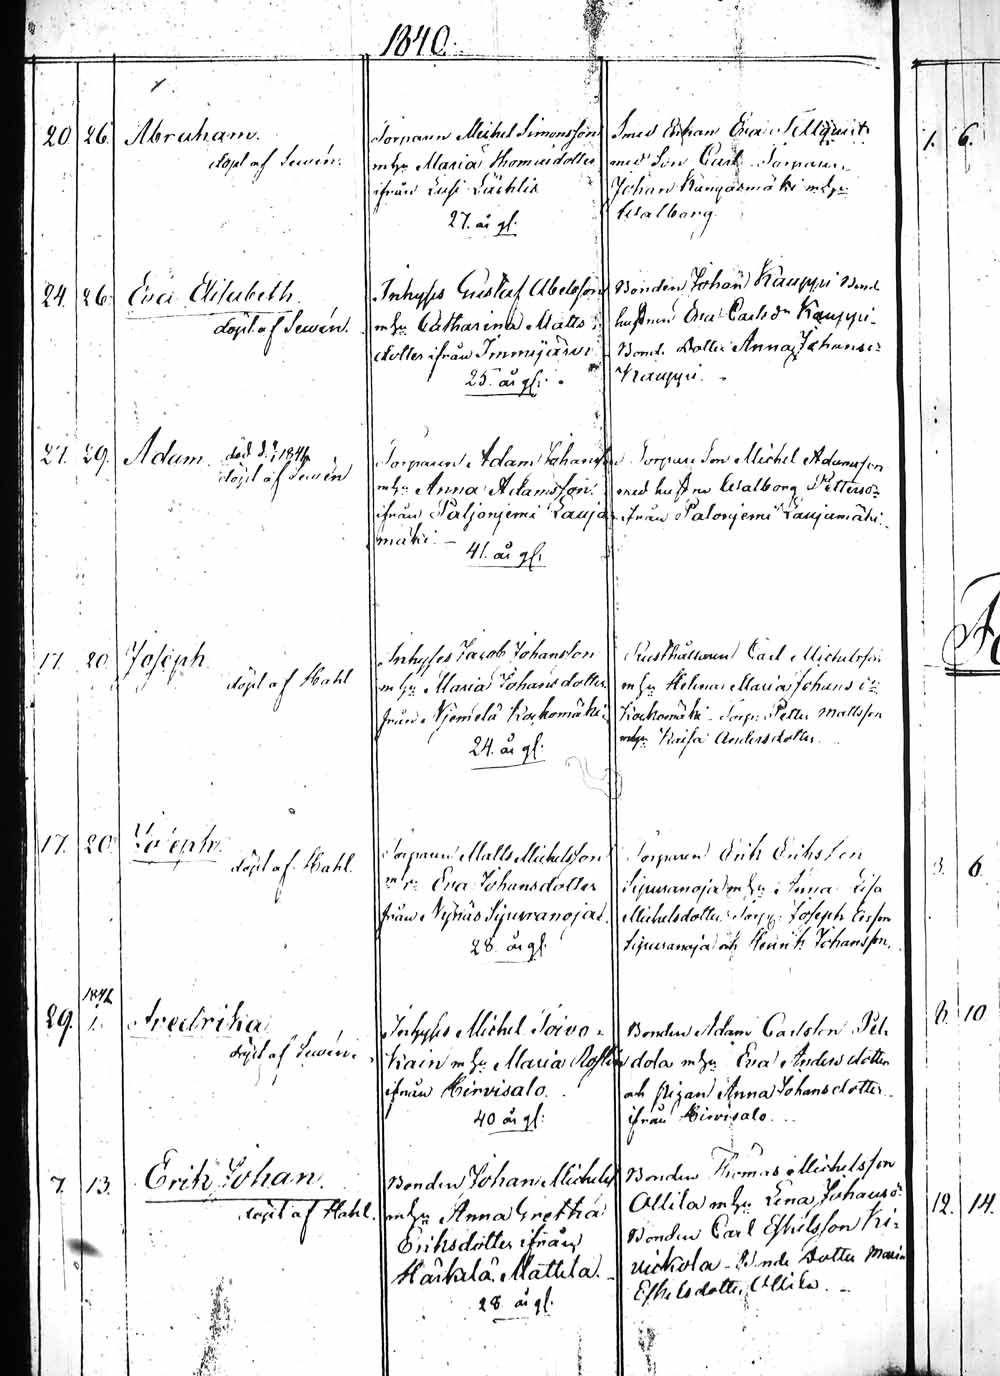 1840.
20 26. Abraham.
döpt af Sewén.
Torparen Michel Simonsson
m h:u Maria Thomasdotter
ifrån
27. år gl.
Smed Enkan Eva
med Son Carl Torparen
Johan Kangasmäki m h:u
Walborg
24. 26. Eva Elisabeth.
döpt af Sewén.
Inhyses Gustaf Abelsson
m h:u Catharina Matts
dotter ifrån Immijärvi
25. år gl.
Bonden Johan Kauppi Bond
hustrun Eva Carlsdr Kauppi
Bond. Dotter Anna Johans
Kauppi.
27. 29. Adam.
döpt af Sewén
Torparen Adam Johansson
m h:u Anna Adamsson
ifrån Paljonjemi Lauja
mäki.
41. år gl.
Torpare Son Michel Adamsson
med hustru Walborg Petters
ifrån Palonjemi Laujamäki
17. 20. Joseph
döpt af Hahl
Inhyses Jacob Johansson
m h:u Maria Johansdotter
från Njemelä Kockomäki
24. år gl.
Rusthållaren Carl Michelsson
m h:u Helena Maria Johans
Kockomäki Torp: Petter Mattsson
m h:u Kaisa Andersdotter
17. 20. Joseph.
döpt af Hahl.
Torparen Matts Michelsson
Eva Johansdotter
från Nynäs Sipuranoja.
28. år gl.
Torparen Erik Eriksson
Sipuranoja m h:u Anna Lisa
Michelsdotter Torp: Joseph
Sipuranoja och Henrik Johansson.
1841
29. 1. Fredrika
döpt af Sewén.
Inhyses Michel Toivo
kain m h:u Maria
ifrån Hirvisalo.
40 år gl.
Bonden Adam Carlsson Pel
dola m h:u Eva Andersdotter
och Pigan Anna Johansdotter
ifrån Hirvisalo.
7. 13. Erik Johan.
döpt af Hahl.
Bonden Johan Michelss
m h:u Anna Gretha
Eriksdotter ifrån
Härkälä Mattila.
28 år gl.
Bonden Thomas Michelsson
Ollila m h:u Lena Johans
Bonden Carl Eskilsson Ki
vickola Bonde Dotter Maria
Eskelsdotter Ollila.
1. 6.
3. 6
8. 10
12. 14.